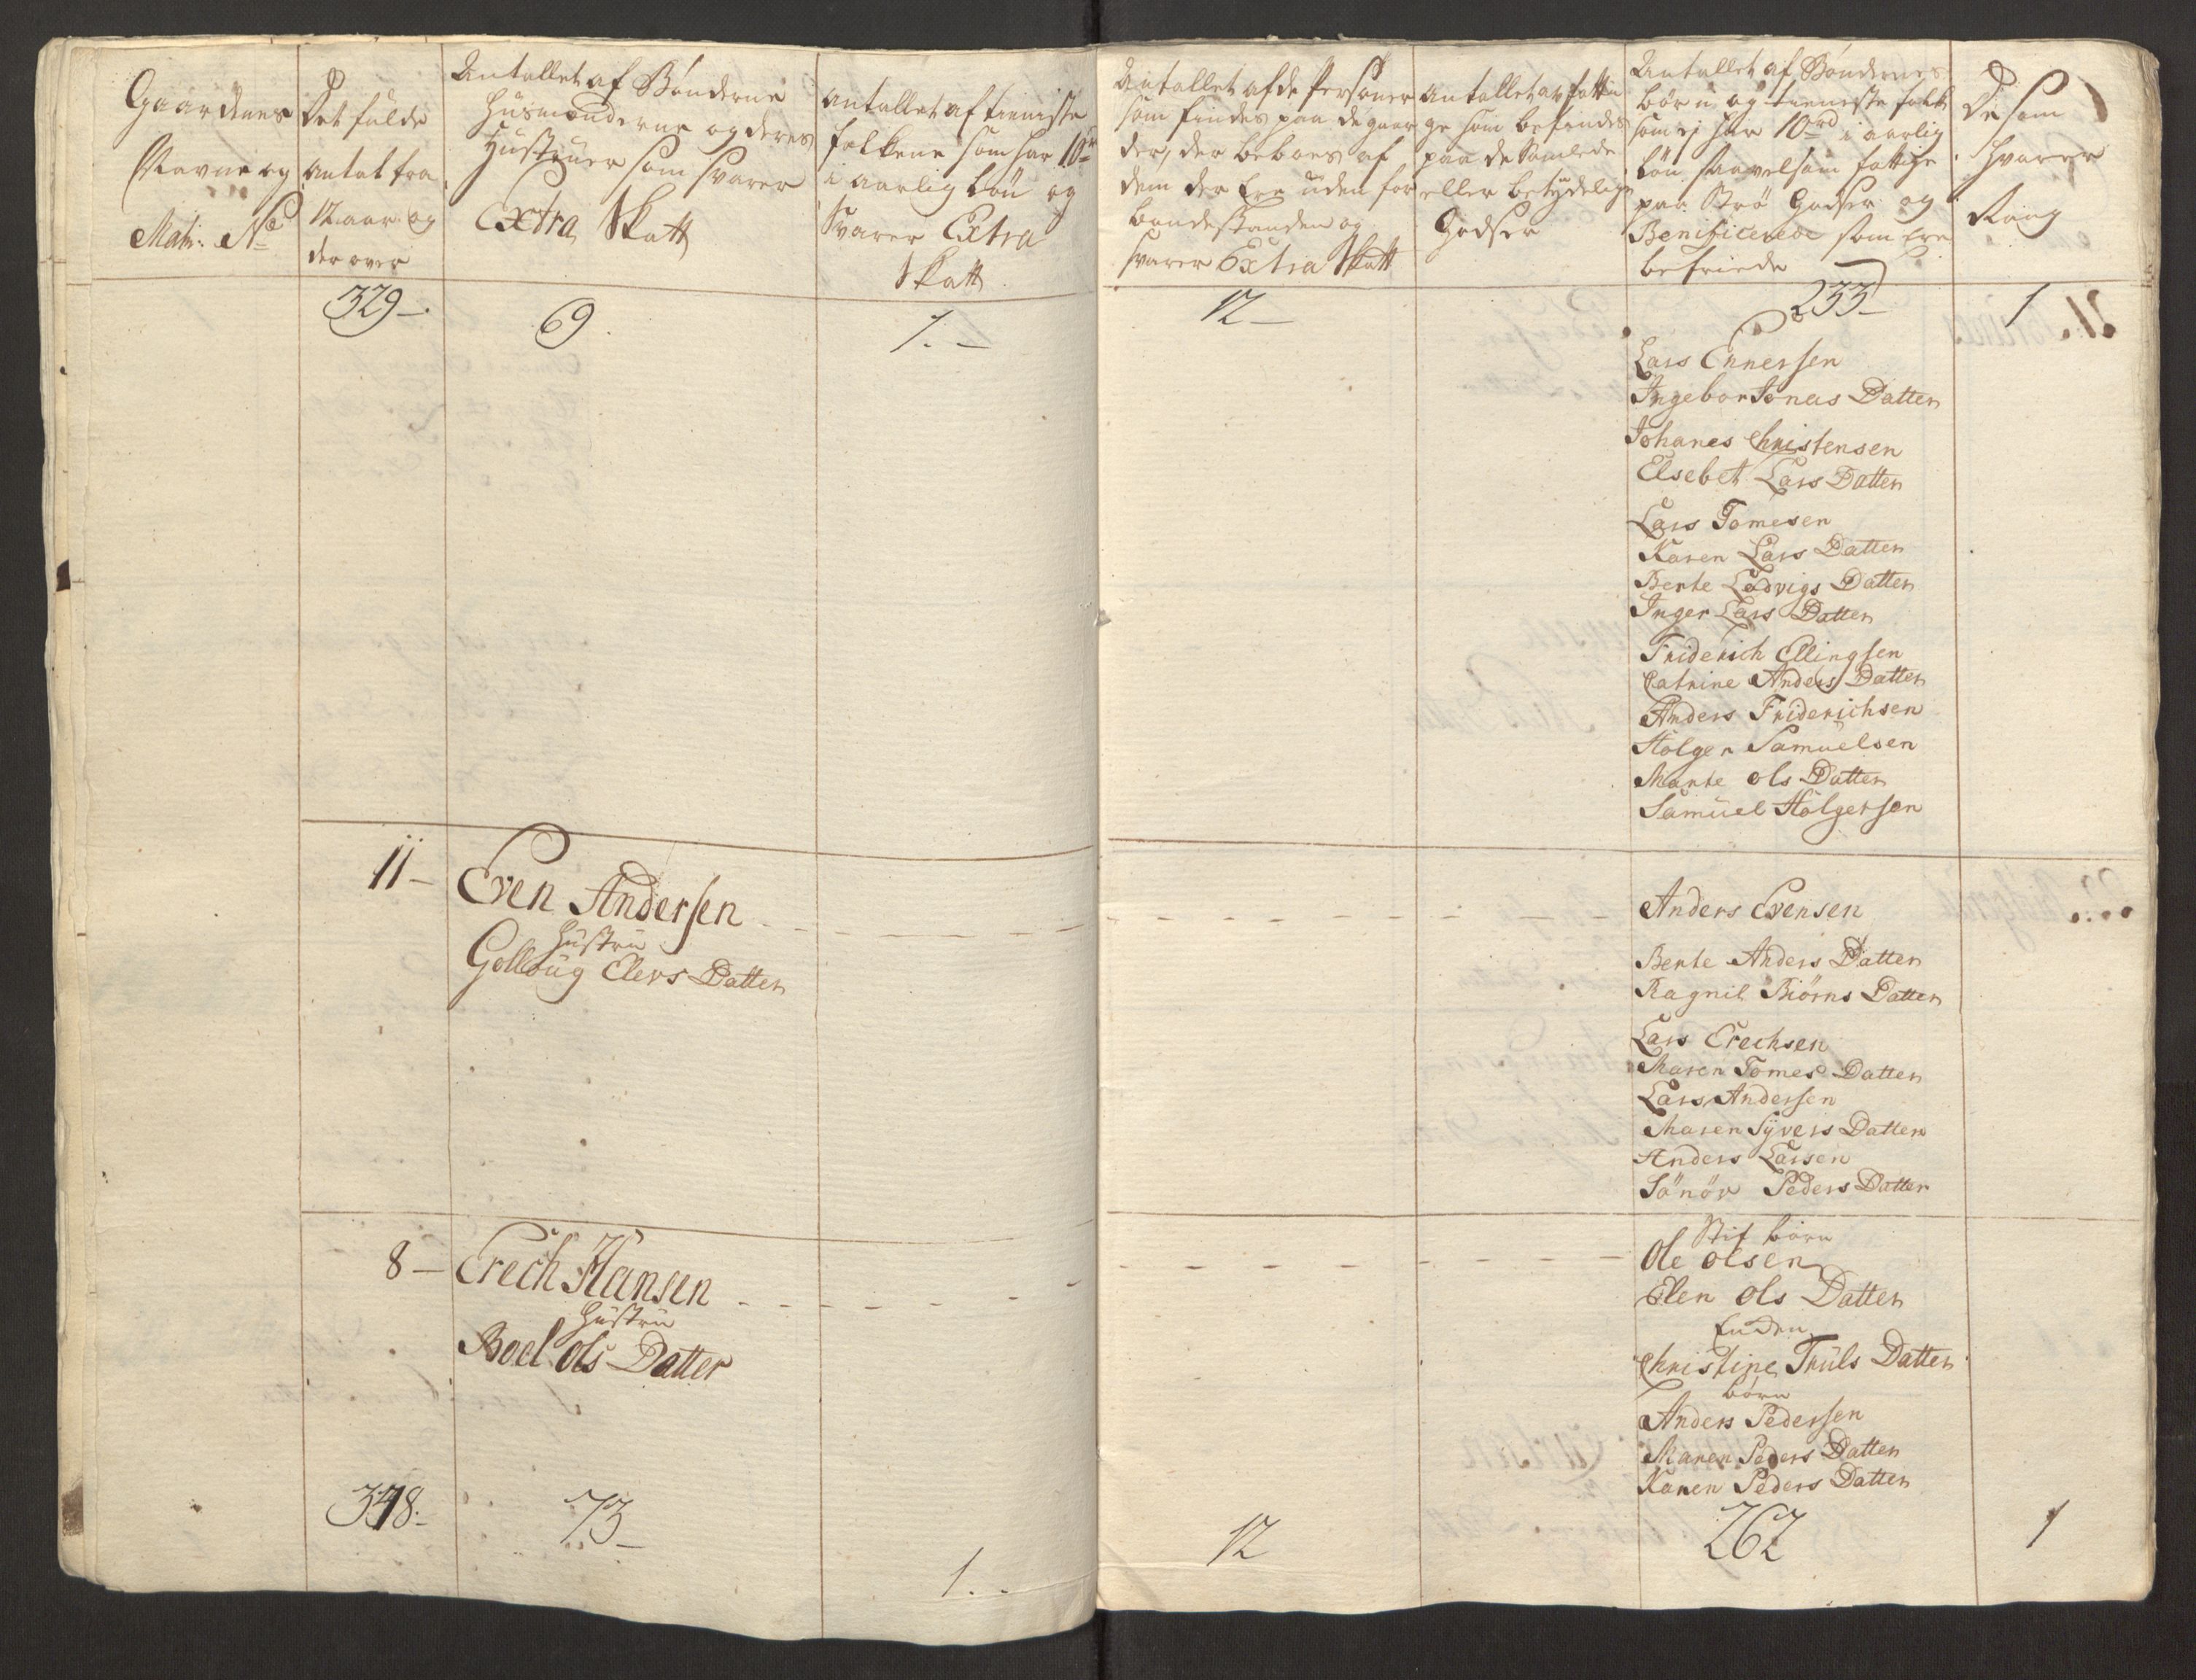 Gaardenes
Navne og
Matr: No
Det fulde
antal fra
12 aar og
der over
Antallet af Bønderne
Husmænderne og deres
Hustruer som svarer
Extra Skatt
antallet af tieniste
folkene som har 10rd
i aarlig Løn og
Svarer Extra
Skatt
Antallet af de Personer
som findes paa de gaar
der, der beboes af
dem der Ere uden for
bondestanden og
svarer Extra Skatt
Antallet av fatti
ge som befindes
paa de Samlede
eller betydelige
Godser
Antallet af Bøndernes
børn og tieneste folk
som ej har 10rd i aarlig
Løn saavelsom fattige
paa Strø Godser og
Benificerede som Ere
befriede
De som
svarer
Rang
329 -
69.
1. -
12 -
233 -
1
Lars Ennersen
Ingebor Jonas Datter
Johanes Christensen
Elsebet Lars Datter
Lars Tomesen
Karen Lars Datter
Berte Ludvigs Datter
Inger Lars Datter
Friderich Ellingsen
Catrine Anders Datter
Anders Friderichsen
Holger Samuelsen
Marte ols Datter
Samuel Holgersen
11 -
Even Andersen
Hustru
Golloug Elers Datter
Anders Evensen
Berte Anders Datter
Ragnil Biørns Datter
Lars Erechsen
Maren Tomes Datter
Lars Andersen
Maren Syvers Datter
Anders Larsen
Sønøv Peders Datter
8 -
Erech Hansen
Hustru
Boel ols Datter
Stif børn
Ole olsen
Elen ols Datter
Enden
Christine Truls Datter
børn
Anders Pedersen
Maren Peders Datter
Karen Peders Datter
348.-
73 -
1. -
12
262
1